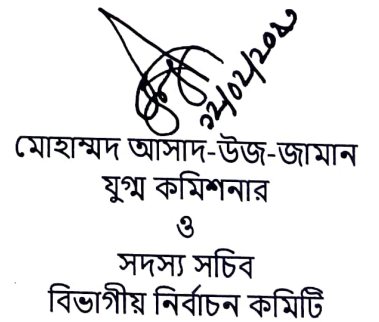 মোহাম্মদ আসাদ-উজ-জামান
যুগ্ম কমিশনার
ও
সদস্য সচিব
বিভাগীয় নির্বাচন কমিটি